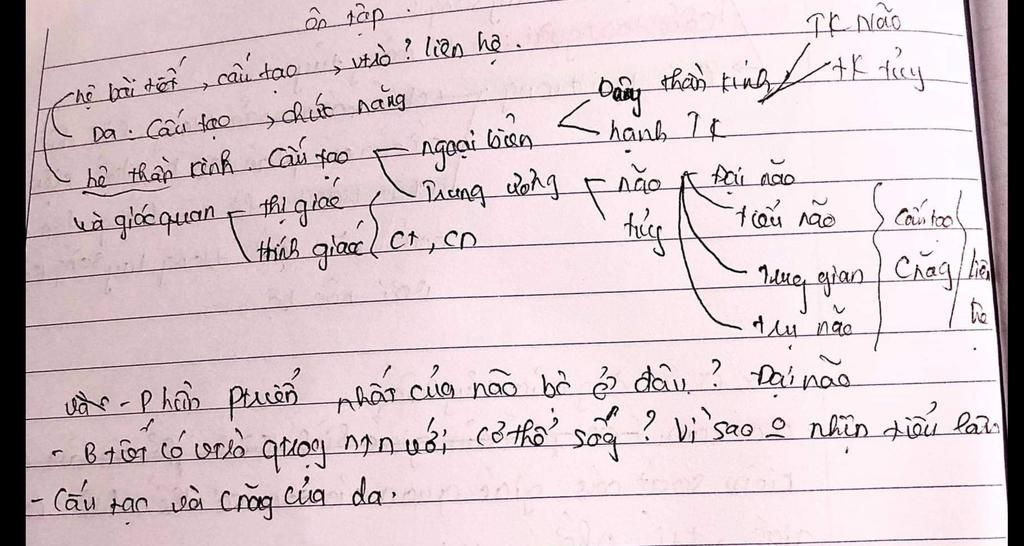 ôn tập.
hệ bài tiết, cấu tạo, vtrò? liên hệ.
Da. Cấu tạo, chức năng
hệ thần kinh. Cấu tạo
ngoại biên
Dây thần kinh
TK Não
TK tủy
hạnh TK
Trung ương
não
tủy
Đại não
tiểu não
trug gian
trụ não
Cấu tạo
Cnăg
liên
và giác quan
thị giác
thính giác
CT, CN
- Phần ptriển nhất của não bộ ở đâu? Đại não
- B tiết có vtrò qtrọg ntn với cơ thể sốg? Vì sao o nhịn tiểu lâu
- Cấu tạo và cnăg của da.